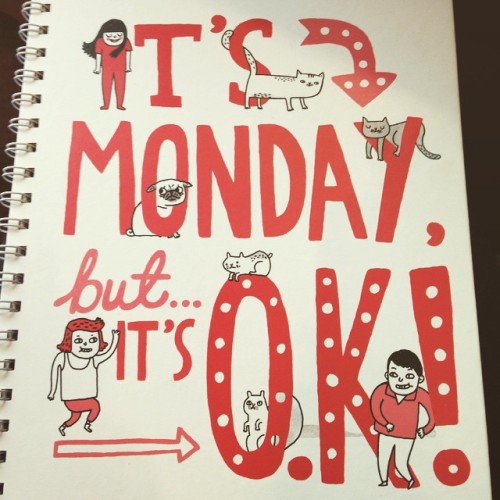 IT'S
MONDAY,
but...
IT'S O.K!.